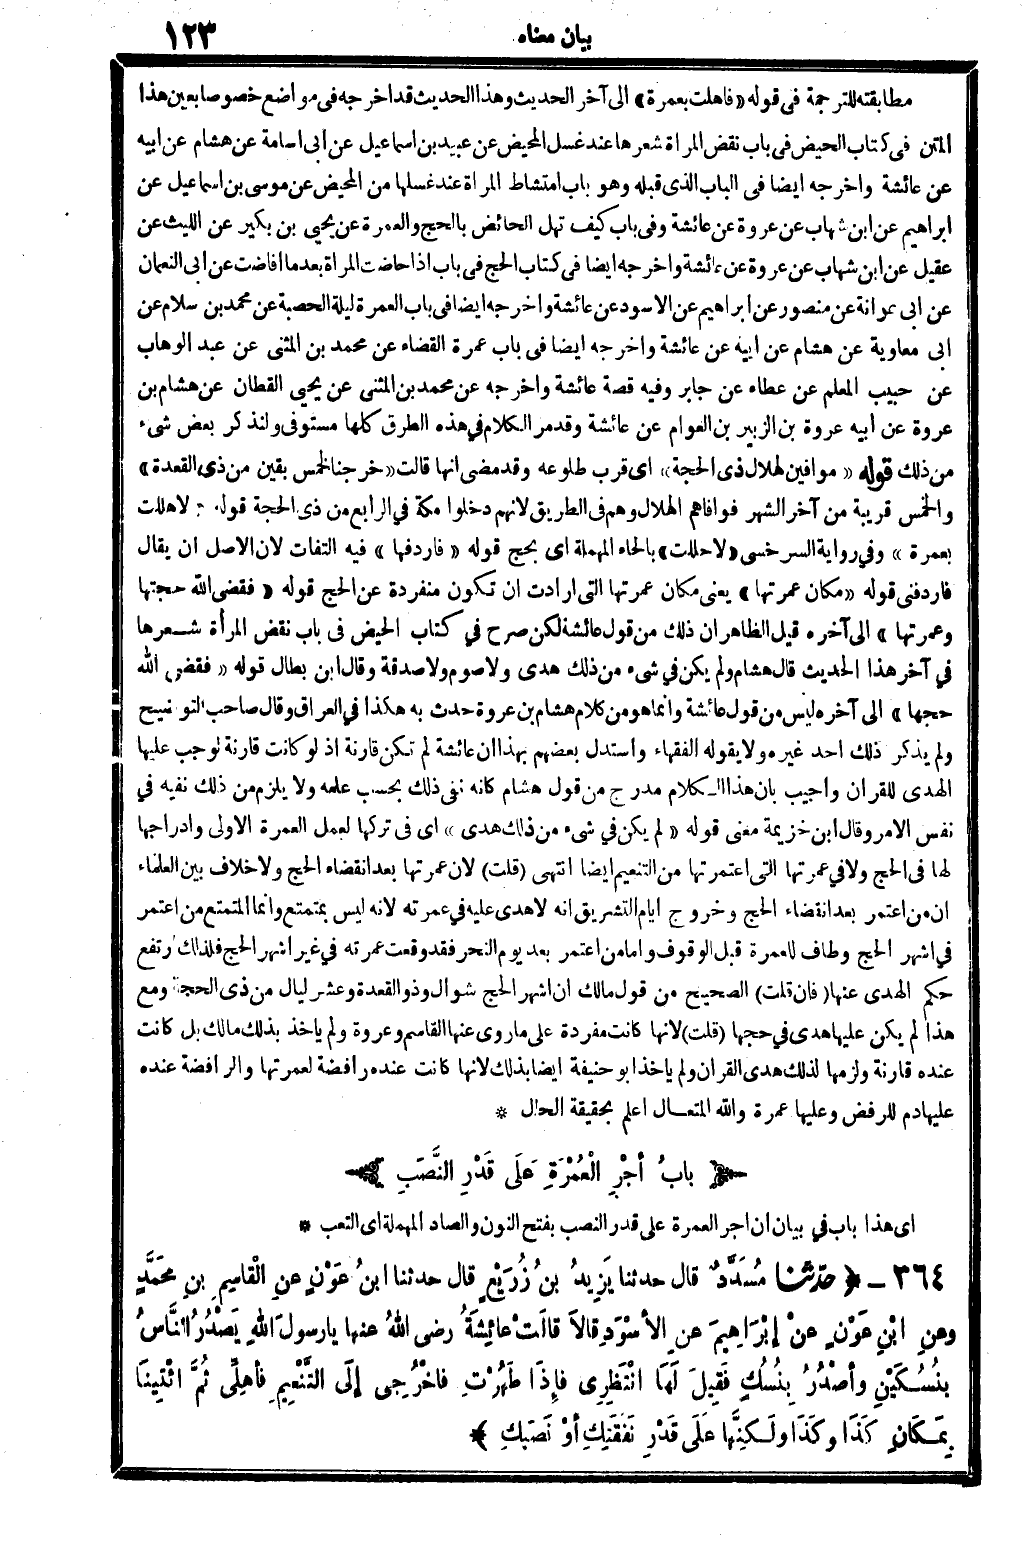 بيان معناه ١٢٣
مطابقته للترجمة في قوله «فاهلت بعمرة» الى آخر الحديث وهذا الحديث قد اخرجه فى مواضع خصوصا بعين هذا
المتن فى كتاب الحيض فى باب نقض المراة شعرها عند غسل المحيض عن عبيد بن اسماعيل عن ابى اسامة عن هشام عن ابيه
عن عائشة واخرجه ايضا فى الباب الذى قبله وهو باب امتشاط المراة عند غسلها من المحيض عن موسى بن اسماعيل عن
ابراهيم عن ابن شهاب عن عروة عن عائشة وفى باب كيف تهل الحائض بالحج والعمرة عن يحيى بن بكير عن الليث عن
عقيل عن ابن شهاب عن عروة عن عائشة واخرجه ايضا فى كتاب الحج فى باب اذا حاضت المراة بعدما افاضت عن ابى النعمان
عن ابى عوانة عن منصور عن ابراهيم عن الاسود عن عائشة واخرجه ايضا فى باب العمرة ليلة الحصبة عن محمد بن سلام عن
ابى معاوية عن هشام عن ابيه عن عائشة واخرجه ايضا فى باب عمرة القضاء عن محمد بن المثنى عن عبد الوهاب
عن حبيب المعلم عن عطاء عن جابر وفيه قصة عائشة واخرجه عن محمد بن المثنى عن يحيى القطان عن هشام بن
عروة عن أبيه عروة بن الزبير بن العوام عن عائشة وقد مر الكلام في هذه الطرق كلها مستوفى ولنذكر بعض شىء
من ذلك قوله «موافين لهلال ذى الحجة» اى قرب طلوعه وقد مضى انها قالت «خرجنا لخمس بقين من ذى القعدة»
والخمس قريبة من آخر الشهر فوافاهم الهلال وهم فى الطريق لانهم دخلوا مكة في الرابع من ذى الحجة قوله «لاهللت
بعمرة» وفي رواية السرخسى «لاحللت» بالحاء المهملة اى بحج قوله «فاردفها» فيه التفات لان الاصل ان يقال
فاردفنى قوله «مكان عمرتها» يعنى مكان عمرتها التى ارادت ان تكون منفردة عن الحج قوله «فقضى الله حجتها
وعمرتها» الى آخره قيل الظاهر ان ذلك من قول عائشة لكن صرح في كتاب الحيض فى باب نقض المرأة شعرها
في آخر هذا الحديث قال هشام ولم يكن في شىء من ذلك هدى ولا صوم ولا صدقة وقال ابن بطال قوله «فقضى الله
حجها» الى آخره ليس من قول عائشة وانما هو من كلام هشام بن عروة حدث به هكذا في العراق وقال صاحب التوضيح
ولم يذكر ذلك احد غيره ولا يقوله الفقهاء واستدل بعضهم بهذا ان عائشة لم تكن قارنة اذ لو كانت قارنة لوجب عليها
الهدى للقران وأجيب بان هذا الكلام مدرج من قول هشام كانه نفى ذلك بحسب علمه ولا يلزم من ذلك نفيه في
نفس الامر وقال ابن خزيمة معنى قوله «لم يكن في شىء من ذلك هدى» اى فى تركها لعمل العمرة الاولى وادراجها
لها فى الحج ولا في عمرتها التى اعتمرتها من التنعيم ايضا انتهى (قلت) لان عمرتها بعد انقضاء الحج ولا خلاف بين العلماء
ان من اعتمر بعد انقضاء الحج وخروج أيام التشريق انه لا هدى عليه في عمرته لانه ليس بمتمتع وانما المتمتع من اعتمر
في اشهر الحج وطاف للعمرة قبل الوقوف واما من اعتمر بعد يوم النحر فقد وقعت عمرته في غير اشهر الحج فلذلك ارتفع
حكم الهدى عنها (فان قلت) الصحيح من قول مالك ان اشهر الحج شوال وذو القعدة وعشر ليال من ذى الحجة ومع
هذا لم يكن عليها هدى في حجها (قلت) لانها كانت مفردة على ما روى عنها القاسم وعروة ولم ياخذ بذلك مالك بل كانت
عنده قارنة ولزمها لذلك هدى القران ولم ياخذ ابو حنيفة ايضا بذلك لانها كانت عنده رافضة لعمرتها والرافضة عنده
عليها دم للرفض وعليها عمرة والله المتعال اعلم بحقيقة الحال *
بابُ أجْرِ الْعُمْرَةِ عَلَى قَدْرِ النَّصَبِ
اى هذا باب في بيان ان اجر العمرة على قدر النصب بفتح النون والصاد المهملة اى التعب *
٣٦٤ - ﴿ حدثنا مُسَدَّدٌ قال حدثنا يَزِيدُ بنُ زُرَيْعٍ قال حدثنا ابنُ عَوْنٍ عنِ الْقَاسِمِ بنِ مُحَمَّدٍ
وعنِ ابْنِ عَوْنٍ عنْ إبْرَاهِيمَ عنِ الأسْوَدِ قالاَ قالَتْ عائِشَةُ رضى اللهُ عنها يارسولَ اللهِ يَصْدُرُ النَّاسُ
بِنُسُكَيْنِ وأصْدُرُ بِنُسُكٍ فَقِيلَ لَهَا انْتَظِرِى فإِذَا طَهُرْتِ فاخْرُجِى إلَى التَّنْعِيمِ فأهِلِّى ثُمَّ ائْتِينَا
بِمَكَانِ كَذَا وكَذَا ولَكِنَّها عَلَى قَدْرِ نَفَقَتِكِ أوْ نَصَبِكِ ﴾